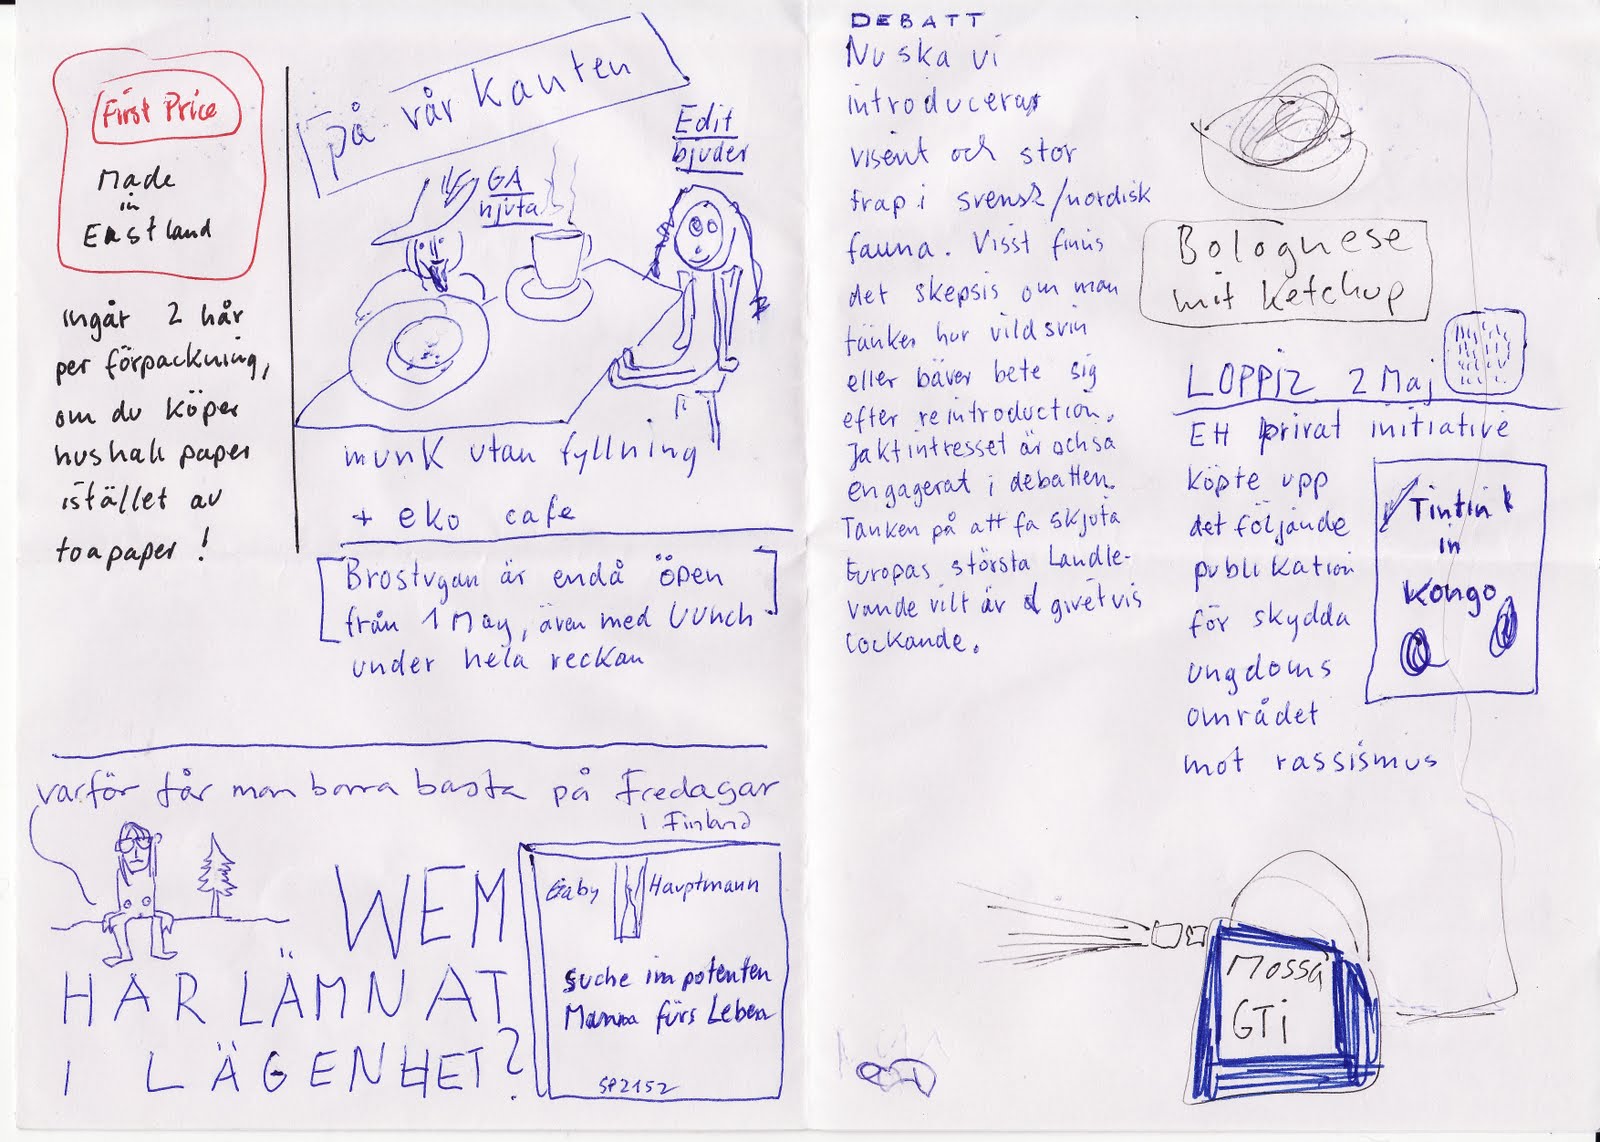 First Price
Made
in
Eastland
ingår 2 hår
per förpackning,
om du köper
hushall paper
istället av
toapaper !
på vår Kanten
Edit
bjuder
GA
njuta
munk utan fyllning
+ eko cafe
Brostugan är endå öpen
från 1 May, även med lunch
under hela reckan
varför får man barra basta på Fredagar
i Finland
WEM
HAR LÄMNAT
I LÄGENHET?
Gaby Hauptmann
suche impotenten
Manna fürs Leben
SP2152
DEBATT
Nu ska vi
introducerar
visent och stor
trap i svensk/nordisk
fauna. Visst finns
det skepsis om man
tänker hur vildsvin
eller bäver bete sig
efter reintroduction.
Jaktintresset är ochså
engagerat i debatten.
Tanken på att få skjuta
Europas största Landle-
vande vilt är givetvis
lockande.
Bolognese
mit Ketchup
LOPPIZ 2 Maj
EH privat initiative
köpte upp
det följande
publikation
för skydda
ungdoms
området
mot rassismus
Tintin
in
Kongo
Mossa
GTi